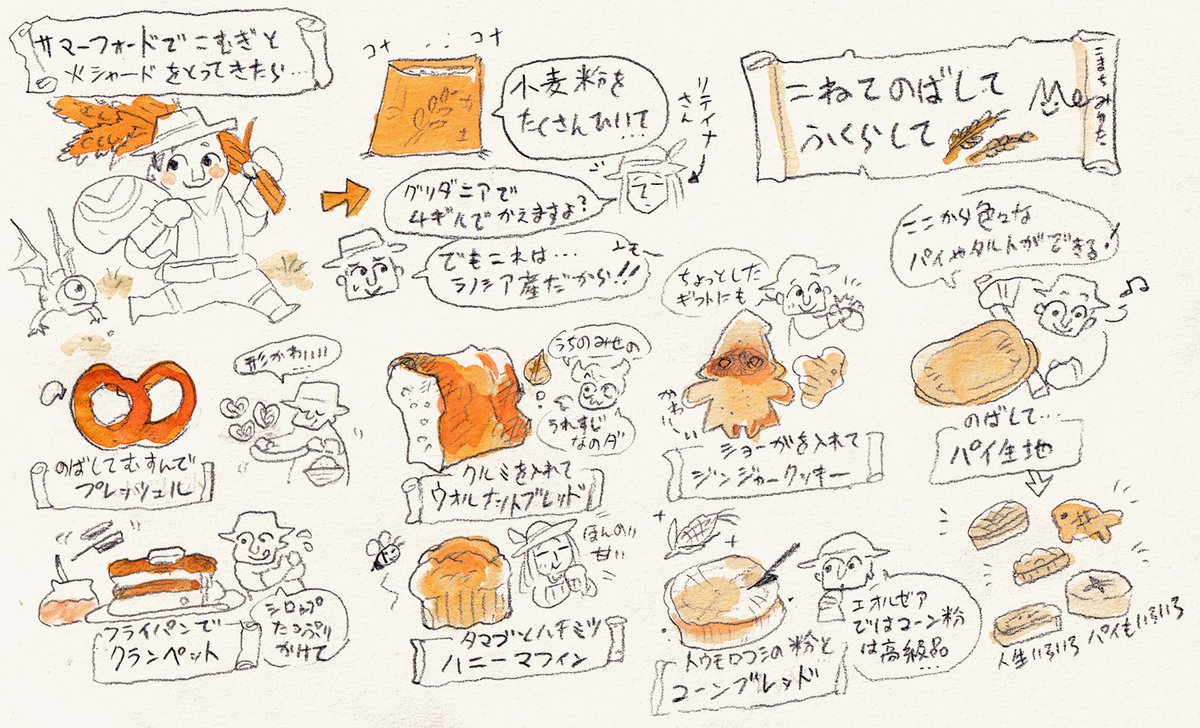 サマーフォードでこむぎと
火シャードをとってきたら…
コナ
コナ
小麦粉を
たくさんひいて…
リテイナー
さん
グリダニアで
4ギルでかえますよ?
でもこれは…
ラノシア産だから!!
こねてのばして
ふくらして
こまちみかた
Me
ここから色々な
パイやタルトができる!
形かわいい
のばしてむすんで
プレッツェル
うちのみせの
うれすじ
なのダ
クルミを入れて
ウォルナットブレッド
ちょっとした
ギフトにも
かわいい
ショーガを入れて
ジンジャークッキー
のばして…
パイ生地
シロップ
たっぷり
かけて
フライパンで
クランペット
ほんのり
甘い
タマゴとハチミツ
ハニーマフィン
エオルゼア
ではコーン粉
は高級品…
トウモロコシの粉と
コーンブレッド
人生いろいろ パイもいろいろ